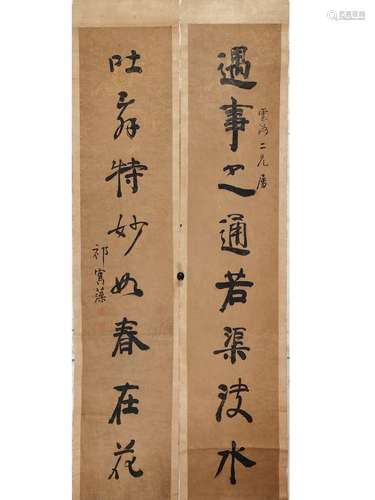 遇事通若渠決水
雲二兄屬
吐辭特妙如春在花
祁寯藻
易拍全球